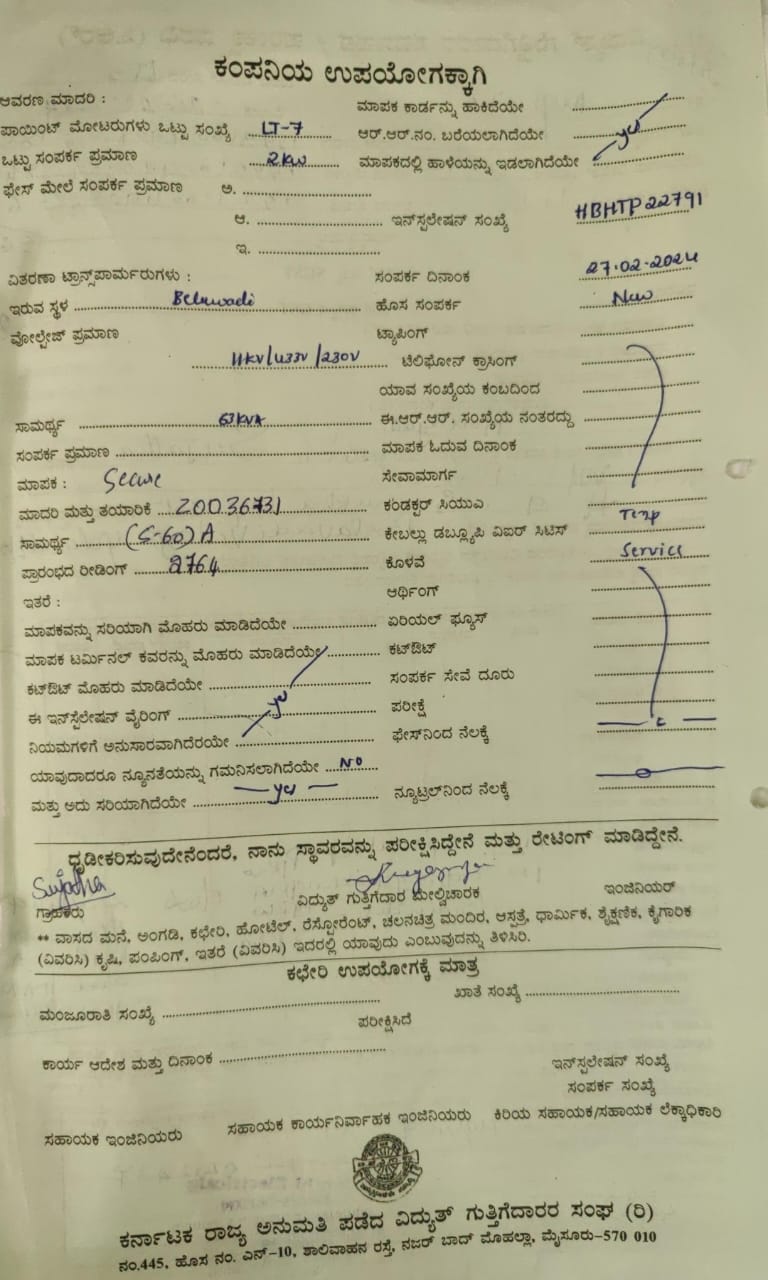 ಕಂಪನಿಯ ಉಪಯೋಗಕ್ಕಾಗಿ
ಆವರಣ ಮಾದರಿ : ಮಾಪಕ ಕಾರ್ಡನ್ನು ಹಾಕಿದೆಯೇ
ಪಾಯಿಂಟ್ ಮೋಟರುಗಳು ಒಟ್ಟು ಸಂಖ್ಯೆ LT-7 ಆರ್.ಆರ್.ನಂ. ಬರೆಯಲಾಗಿದೆಯೇ yes
ಒಟ್ಟು ಸಂಪರ್ಕ ಪ್ರಮಾಣ 2kw ಮಾಪಕದಲ್ಲಿ ಹಾಳೆಯನ್ನು ಇಡಲಾಗಿದೆಯೇ
ಫೇಸ್ ಮೇಲೆ ಸಂಪರ್ಕ ಪ್ರಮಾಣ ಅ.
ಆ. ಇನ್‌ಸ್ಪಲೇಷನ್ ಸಂಖ್ಯೆ HBHTP22791
ಇ.
ವಿತರಣಾ ಟ್ರಾನ್ಸ್‌ಪಾರ್ಮರುಗಳು : ಸಂಪರ್ಕ ದಿನಾಂಕ 27.02.2024
ಇರುವ ಸ್ಥಳ Belawadi ಹೊಸ ಸಂಪರ್ಕ New
ವೋಲ್ಟೇಜ್ ಪ್ರಮಾಣ ಟ್ಯಾಪಿಂಗ್
11KV/433V/230V ಟೆಲಿಫೋನ್ ಕ್ರಾಸಿಂಗ್
ಯಾವ ಸಂಖ್ಯೆಯ ಕಂಬದಿಂದ
ಸಾಮರ್ಥ್ಯ 63KVA ಈ.ಆರ್.ಆರ್. ಸಂಖ್ಯೆಯ ನಂತರದ್ದು
ಸಂಪರ್ಕ ಪ್ರಮಾಣ ಮಾಪಕ ಓದುವ ದಿನಾಂಕ
ಮಾಪಕ : Secure ಸೇವಾಮಾರ್ಗ
ಮಾದರಿ ಮತ್ತು ತಯಾರಿಕೆ 20036731 ಕಂಡಕ್ಟರ್ ಸಿಯುಎ
ಸಾಮರ್ಥ್ಯ (5-60)A ಕೇಬಲ್ಲು ಡಬ್ಲ್ಯೂಪಿ ವಿಐರ್ ಸಿಟಿಸ್ Temp
ಪ್ರಾರಂಭದ ರೀಡಿಂಗ್ 2764 ಕೊಳವೆ Service
ಇತರೆ : ಆರ್ಥಿಂಗ್
ಮಾಪಕವನ್ನು ಸರಿಯಾಗಿ ಮೊಹರು ಮಾಡಿದೆಯೇ ಏರಿಯಲ್ ಫ್ಯೂಸ್
ಮಾಪಕ ಟರ್ಮಿನಲ್ ಕವರನ್ನು ಮೊಹರು ಮಾಡಿದೆಯೇ ಕಟ್‌ಔಟ್
ಕಟ್‌ಔಟ್ ಮೊಹರು ಮಾಡಿದೆಯೇ ಸಂಪರ್ಕ ಸೇವೆ ದೂರು
ಈ ಇನ್‌ಸ್ಟಲೇಷನ್ ವೈರಿಂಗ್ yes ಪರೀಕ್ಷೆ
ನಿಯಮಗಳಿಗೆ ಅನುಸಾರವಾಗಿದೆರಯೇ ಫೇಸ್‌ನಿಂದ ನೆಲಕ್ಕೆ
ಯಾವುದಾದರೂ ನ್ಯೂನತೆಯನ್ನು ಗಮನಿಸಲಾಗಿದೆಯೇ NO
ಮತ್ತು ಅದು ಸರಿಯಾಗಿದೆಯೇ yes ನ್ಯೂಟ್ರಲ್‌ನಿಂದ ನೆಲಕ್ಕೆ
ಧೃಡೀಕರಿಸುವುದೇನೆಂದರೆ, ನಾನು ಸ್ಥಾವರವನ್ನು ಪರೀಕ್ಷಿಸಿದ್ದೇನೆ ಮತ್ತು ರೇಟಿಂಗ್ ಮಾಡಿದ್ದೇನೆ.
Sujatha
ಗ್ರಾಹಕರು ವಿದ್ಯುತ್ ಗುತ್ತಿಗೆದಾರ ಮೇಲ್ವಿಚಾರಕ ಇಂಜಿನಿಯರ್
** ವಾಸದ ಮನೆ, ಅಂಗಡಿ, ಕಛೇರಿ, ಹೋಟೆಲ್, ರೆಸ್ಟೋರೆಂಟ್, ಚಲನಚಿತ್ರ ಮಂದಿರ, ಆಸ್ಪತ್ರೆ, ಧಾರ್ಮಿಕ, ಶೈಕ್ಷಣಿಕ, ಕೈಗಾರಿಕ
(ವಿವರಿಸಿ) ಕೃಷಿ, ಪಂಪಿಂಗ್, ಇತರೆ (ವಿವರಿಸಿ) ಇದರಲ್ಲಿ ಯಾವುದು ಎಂಬುವುದನ್ನು ತಿಳಿಸಿರಿ.
ಕಛೇರಿ ಉಪಯೋಗಕ್ಕೆ ಮಾತ್ರ
ಮಂಜೂರಾತಿ ಸಂಖ್ಯೆ ಖಾತೆ ಸಂಖ್ಯೆ
ಪರೀಕ್ಷಿಸಿದೆ
ಕಾರ್ಯ ಆದೇಶ ಮತ್ತು ದಿನಾಂಕ ಇನ್‌ಸ್ಪಲೇಷನ್ ಸಂಖ್ಯೆ
ಸಂಪರ್ಕ ಸಂಖ್ಯೆ
ಸಹಾಯಕ ಇಂಜಿನಿಯರು ಸಹಾಯಕ ಕಾರ್ಯನಿರ್ವಾಹಕ ಇಂಜಿನಿಯರು ಕಿರಿಯ ಸಹಾಯಕ/ಸಹಾಯಕ ಲೆಕ್ಕಾಧಿಕಾರಿ
ಕರ್ನಾಟಕ ರಾಜ್ಯ ಅನುಮತಿ ಪಡೆದ ವಿದ್ಯುತ್ ಗುತ್ತಿಗೆದಾರರ ಸಂಘ (ರಿ)
ನಂ.445, ಹೊಸ ನಂ. ಎನ್-10, ಶಾಲಿವಾಹನ ರಸ್ತೆ, ನಜರ್ ಬಾದ್ ಮೊಹಲ್ಲಾ, ಮೈಸೂರು-570 010